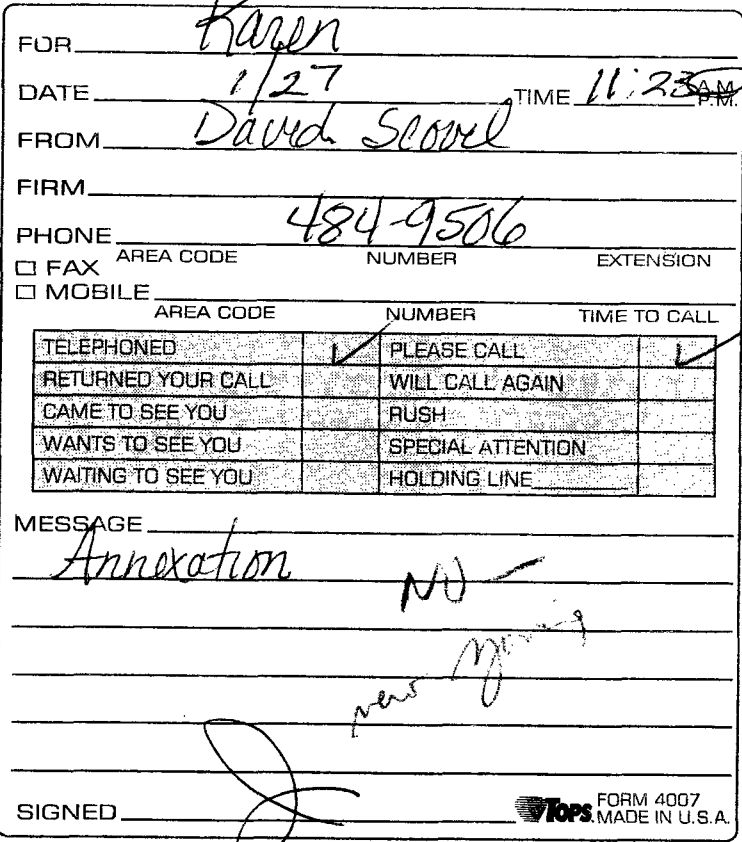 FOR Karen
DATE 1/27 TIME 11:23 A.M.
P.M.
FROM David Scovel
FIRM
PHONE 484-9506
AREA CODE NUMBER EXTENSION
☐ FAX
☐ MOBILE
AREA CODE NUMBER TIME TO CALL
TELEPHONED ✓ PLEASE CALL ✓
RETURNED YOUR CALL WILL CALL AGAIN
CAME TO SEE YOU RUSH
WANTS TO SEE YOU SPECIAL ATTENTION
WAITING TO SEE YOU HOLDING LINE
MESSAGE
Annexation NO –
new
SIGNED
TOPS FORM 4007
MADE IN U.S.A.